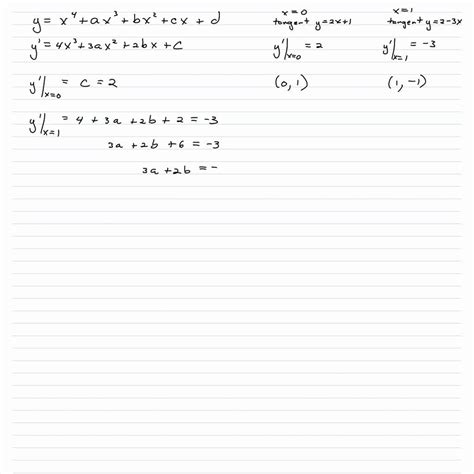 y = x⁴ + ax³ + bx² + cx + d
x=0
tangent y=2x+1
x=1
tangent y=2-3x
y' = 4x³ + 3ax² + 2bx + c
y'|x=0 = 2
y'|x=1 = -3
y'|x=0 = c = 2
(0, 1)
(1, -1)
y'|x=1 = 4 + 3a + 2b + 2 = -3
3a + 2b + 6 = -3
3a + 2b = -